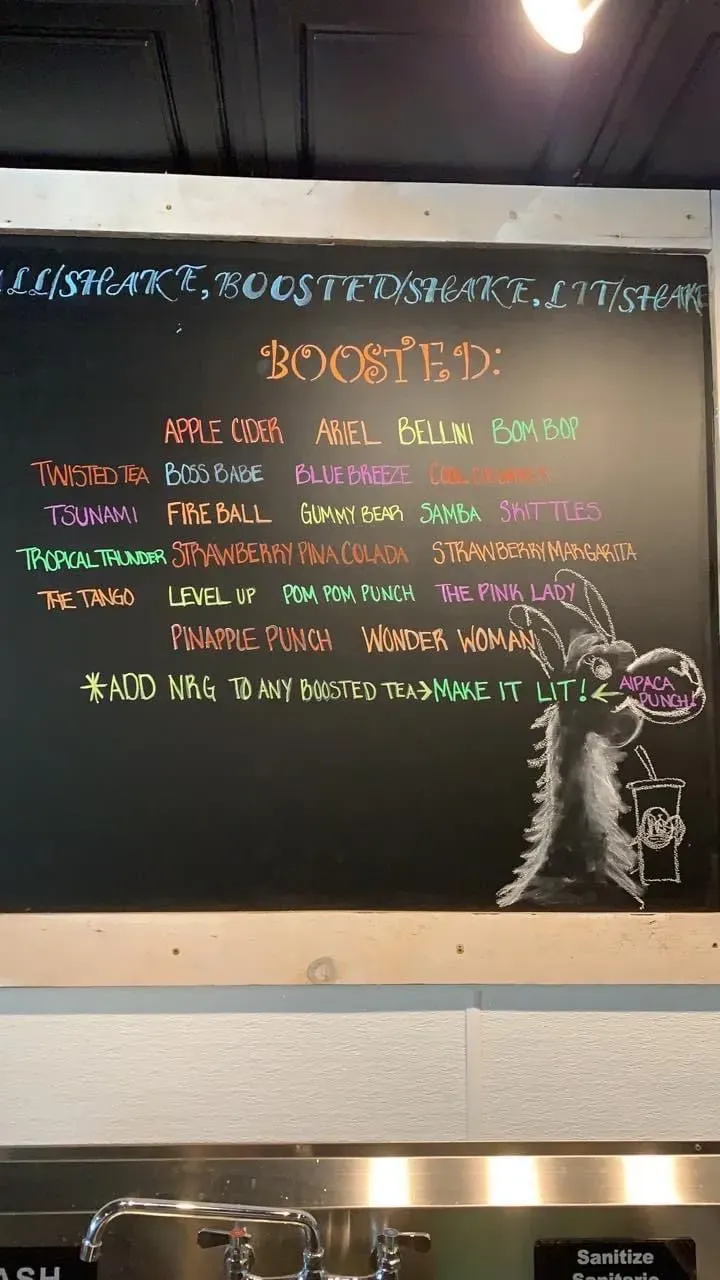 LL/SHAKE, BOOSTED/SHAKE, LIT/SHAKE
BOOSTED:
APPLE CIDER ARIEL BELLINI BOM BOP
TWISTED TEA BOSS BABE BLUE BREEZE
TSUNAMI FIRE BALL GUMMY BEAR SAMBA SKITTLES
TROPICAL THUNDER STRAWBERRY PINA COLADA STRAWBERRY MARGARITA
THE TANGO LEVEL UP POM POM PUNCH THE PINK LADY
PINAPPLE PUNCH WONDER WOMAN
*ADD NRG TO ANY BOOSTED TEA→MAKE IT LIT!← AlPACA
PUNCH!
ASH
Sanitize